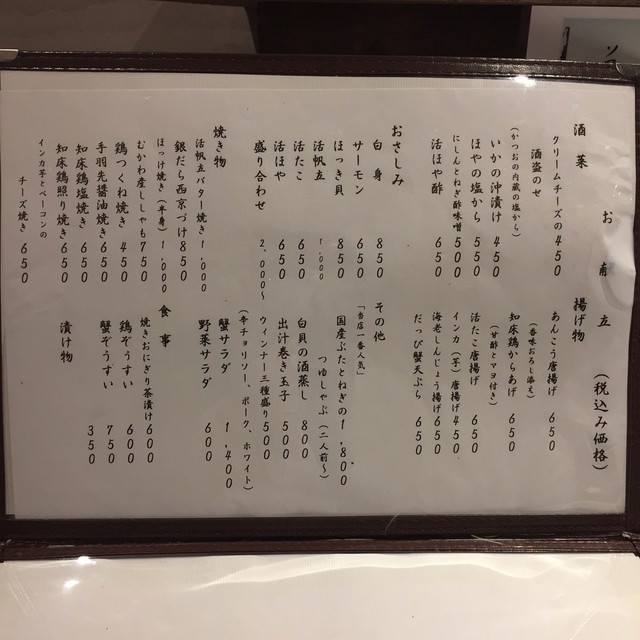 お献立 (税込み価格)
酒菜
クリームチーズの 450
酒盗のせ
(かつおの内蔵の塩から)
いかの沖漬け 450
ほやの塩から 550
にしんとねぎ酢味噌 500
活ほや酢 650
おさしみ
白身 850
サーモン 650
ほっき貝 850
活帆立 1,000
活たこ 650
活ほや 650
盛り合わせ 2,000~
焼き物
活帆立バター焼き 1,000
銀だら西京づけ 850
ほっけ焼き(半身) 1,000
むかわ産ししゃも 750
鶏つくね焼き 450
手羽先醤油焼き 650
知床鶏塩焼き 650
知床鶏照り焼き 650
インカ芋とベーコンの
チーズ焼き 650
揚げ物
あんこう唐揚げ 650
(香味おろし添え)
知床鶏からあげ 650
(甘酢とマヨ付き)
活たこ唐揚げ 650
インカ(芋)唐揚げ 450
海老しんじょう揚げ 650
だっぴ蟹天ぷら 650
その他
「当店一番人気」
国産ぶたとねぎの 1,800
つゆしゃぶ(二人前~)
白貝の酒蒸し 800
出汁巻き玉子 500
ウィンナー三種盛り 500
(辛チョリソー、ポーク、ホワイト)
蟹サラダ 1,400
野菜サラダ 600
食事
焼きおにぎり茶漬け 600
鶏ぞうすい 600
蟹ぞうすい 750
漬け物 350